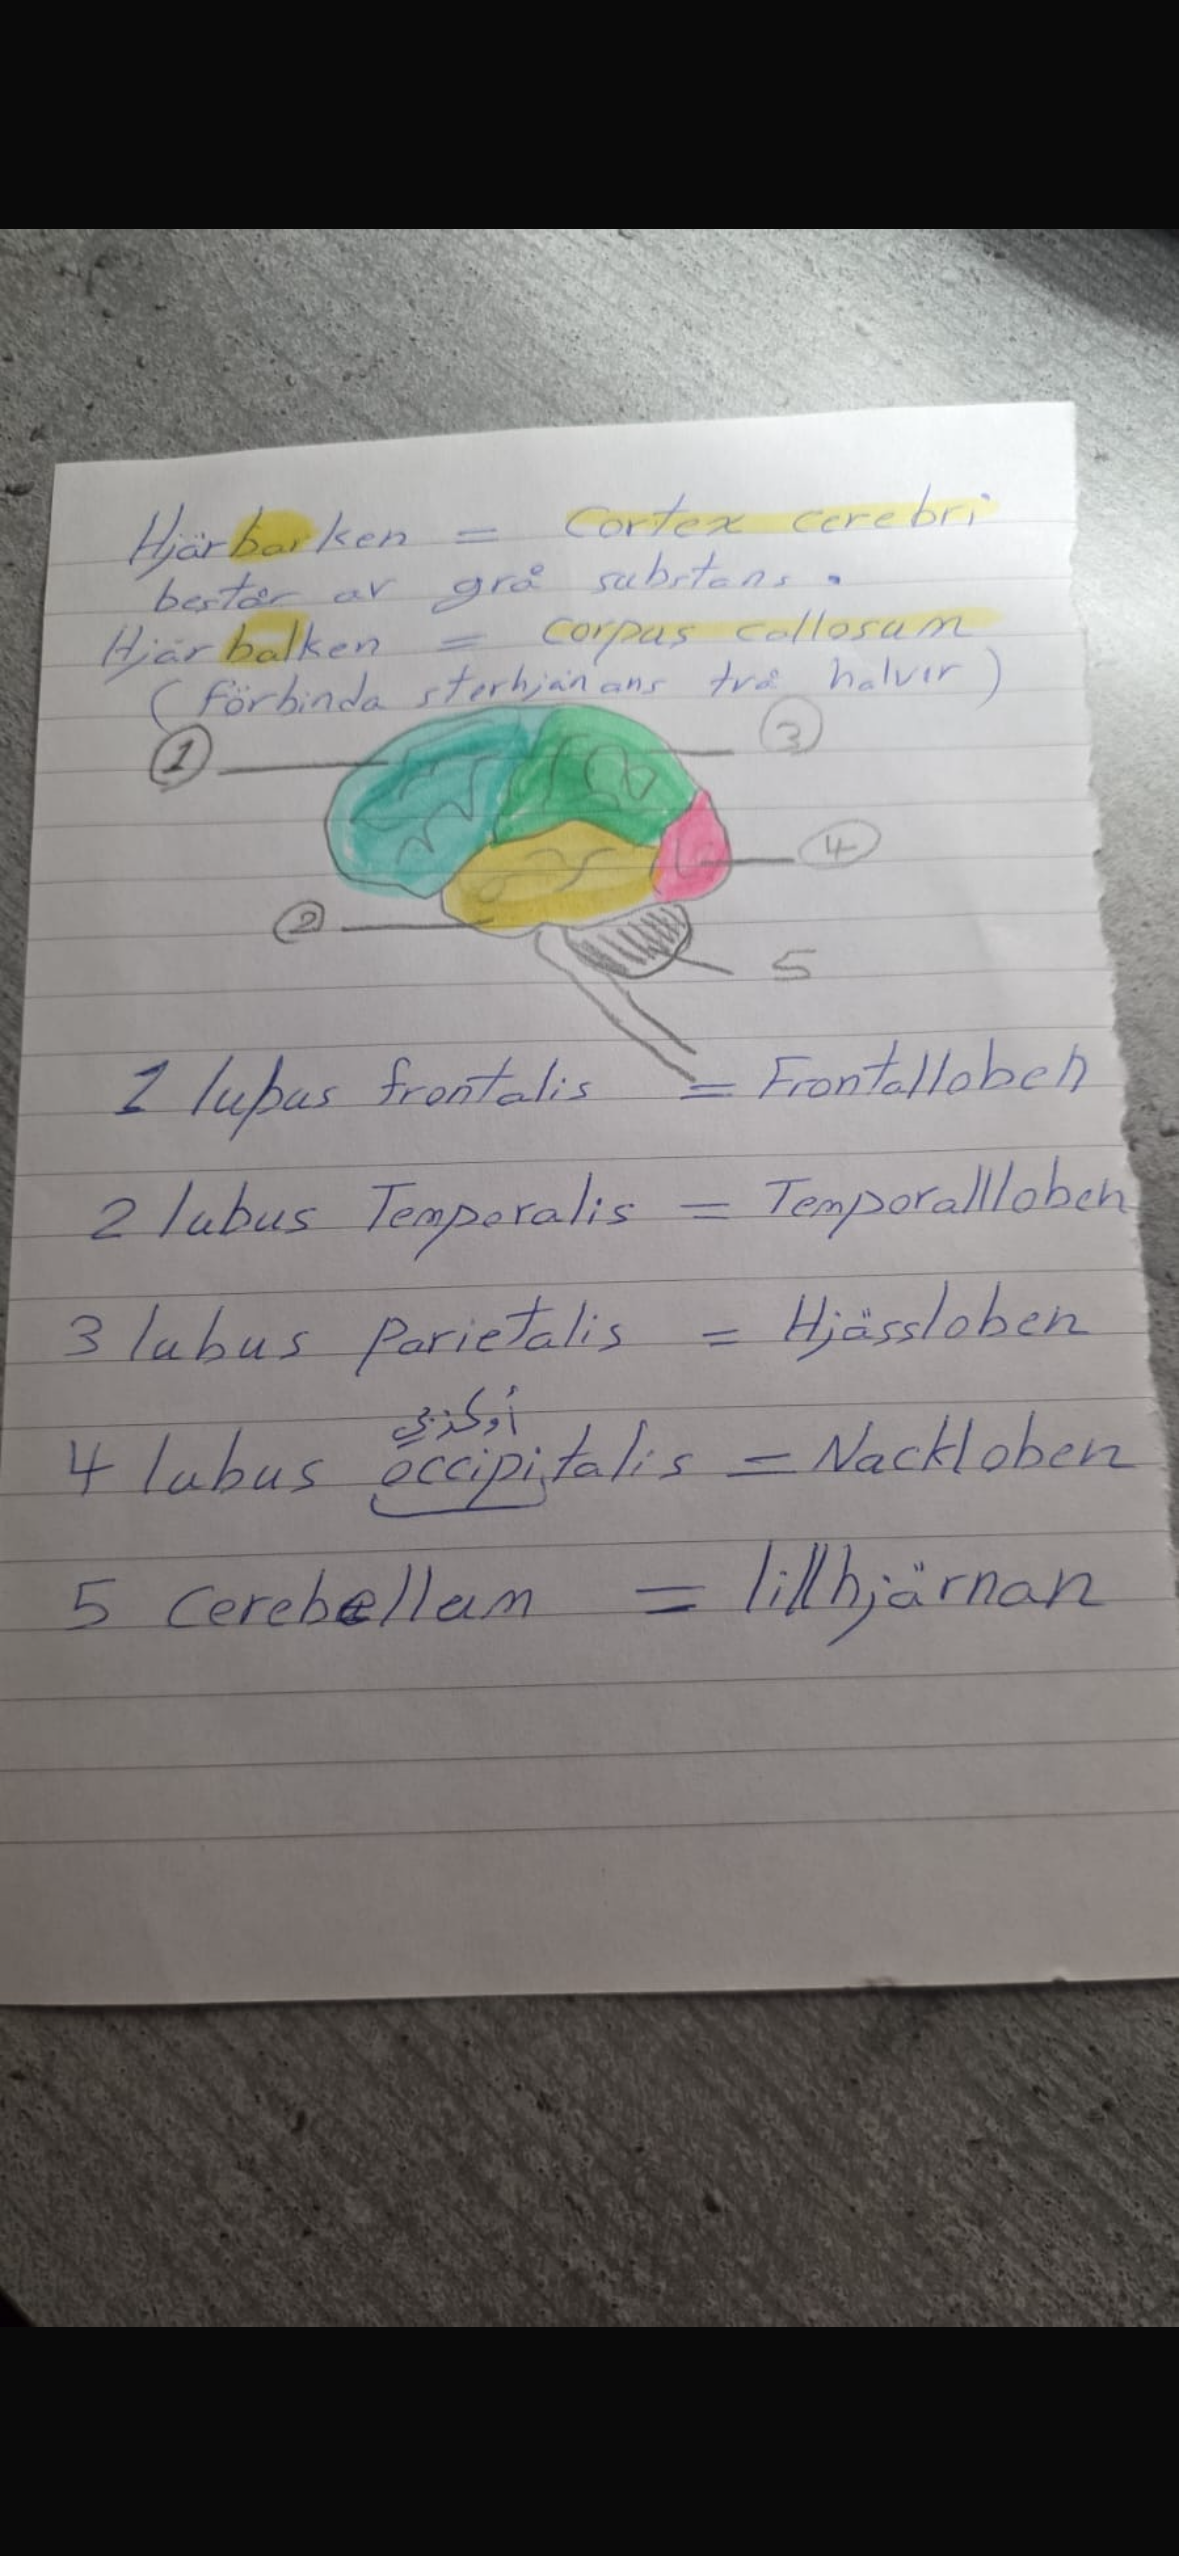 Hjärbarken = Cortex cerebri
består av grå substans.
Hjärbalken = corpus callosum
(förbinda storhjänans två halvir)
1
3
4
2
5
1 lubus frontalis = Frontalloben
2 lubus Temporalis = Temporallloben
3 lubus parietalis = Hjässloben
4 lubus occipitalis = Nackloben
5 Cerebellum = lillhjärnan